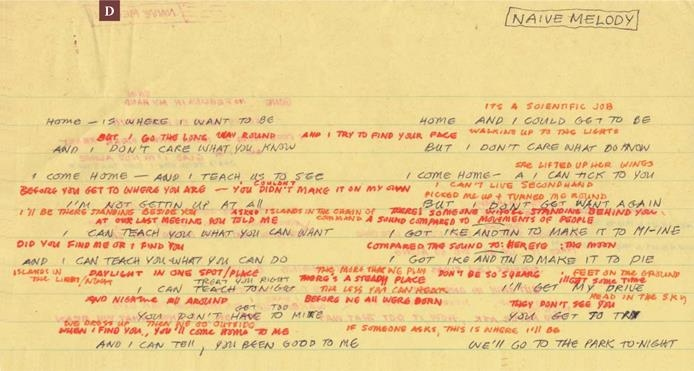 D
NAIVE MELODY
IT'S A SCIENTIFIC JOB
HOME – IS WHERE I WANT TO BE HOME AND I COULD GET TO BE
BUT I GO THE LONG WAY ROUND AND I TRY TO FIND YOUR FACE WALKING UP TO THE LIGHTS
AND I DON'T CARE WHAT YOU KNOW BUT I DON'T CARE WHAT DO KNOW
SHE LIFTED UP HER WINGS
I COME HOME – AND I TEACH US TO SEE I COME HOME – A I CAN TICK TO YOU
COULDN'T I CAN'T LIVE SECONDHAND
BEFORE YOU GET TO WHERE YOU ARE – YOU DIDN'T MAKE IT ON MY OWN
PICKED ME UP + TURNED ME ROUND
I'M NOT GETTIN UP AT ALL BUT I DON'T GET WANT AGAIN
I'LL BE THERE STANDING BESIDE YOU ISLANDS IN THE CHAIN OF COMMAND THERE'S SOMEONE STANDING BEHIND YOU
AT OUR LAST MEETING YOU TOLD ME A SOUND COMPARED TO MOVEMENTS OF PEOPLE
I CAN TEACH YOU WHAT YOU CAN WANT I GOT IKE AND TIN TO MAKE IT TO MI-INE
DID YOU FIND ME OR I FIND YOU COMPARED THE SOUND TO: THE MOON
AND I CAN TEACH YOU WHAT YOU CAN DO I GOT IKE AND TIN TO MAKE IT TO PIE
ISLANDS IN DAYLIGHT IN ONE SPOT/PLACE THE MORE THAT WE PLAY DON'T BE SO SQUARE FEET ON THE GROUND
THE TREAT YOU RIGHT THERE'S A STEADY PLACE GET SOME TIME
I CAN TEACH TONIGHT THE LESS YOU CAN HEAR I'LL GET MY DRIVE
AND NIGHTIME ALL AROUND BEFORE WE ALL WERE BORN HEAD IN THE SKY
GET TOO THEY DON'T SEE YOU
YOU DON'T HAVE TO YOU GET TO
WE DRESS UP THEN WE GO OUTSIDE
WHEN I FIND YOU, YOU'LL COME HOME TO ME IF SOMEONE ASKS, THIS IS WHERE I'LL BE
AND I CAN TELL, YOU BEEN GOOD TO ME WE'LL GO TO THE PARK TO-NIGHT